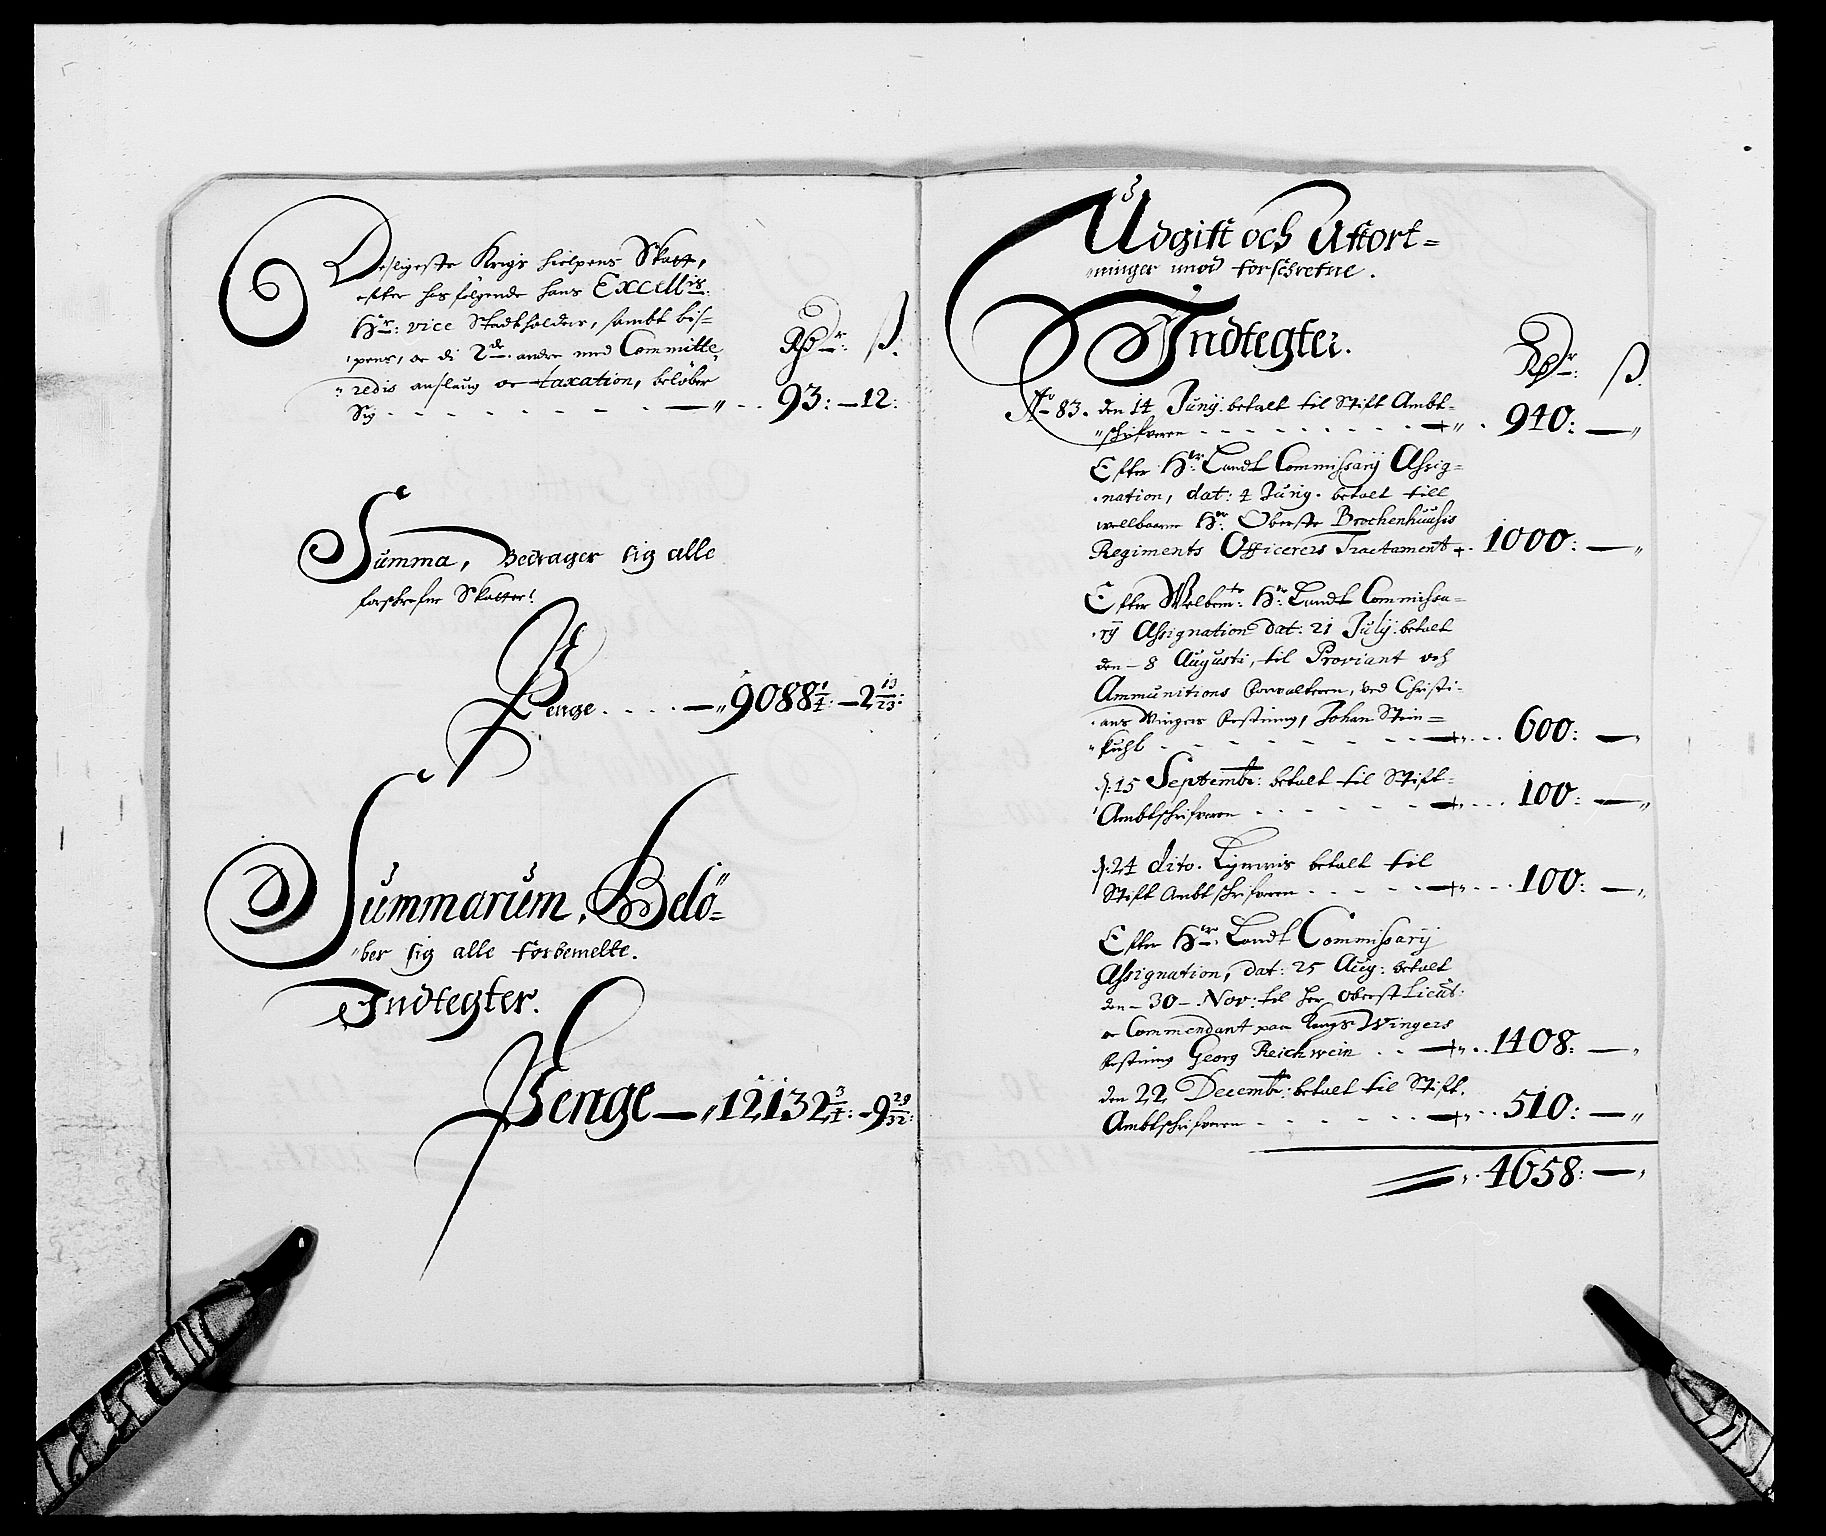 Desligeste Krigs hielpens Skatt,
efter hosfølgende hans Excell is:
Hr: vice Stadtholders, sambt bis-
pens, oc di 2de andre med Committe-
redis anslaug oc taxation, beløber
Rdr: ß.
Sig - - - 93: - 12:
Summa, Bedrager sig alle
forschrefne Skatter!
Penge . . . . - 9088 1/4: - 2 13/23:
Summarum, Belö-
ber sig alle forbemelte.
Indtegter.
Penge - 12132 3/4: - 9 29/32:
Udgift och Affort-
ninger imod forschrefne.
Indtegter.
Rdr: ß.
Ao 83. den 14 Junij. betalt til Stift Ambt-
schrifveren - - - 940: -
Efter Hr: Landt Commissarij Assig-
nation, dat: 4 Junij. betalt till
wellbaarne Hr: Oberste Brochenhuusis
Regiments Officerers Tractament - 1000: -
Efter Welbemte: Hr: Landt Commissa-
rij Assignation dat: 21 Julij. betalt
den - 8 Augusti, til Proviant och
Ammunitions Forvalteren, ved Christi-
ans Vingers Festning, Johan Stein-
kuhl - - - 600: -
d: 15 Septembr: betalt til Stift-
Ambtschrifveren - - - 100: -
d: 24 dito. Ligervis betalt til
Stift Ambtschrifveren - - - 100: -
Efter Hr: Landt Commissarij
Assignation, dat: 25 Aug: betalt
den - 30 - Nov: til her Oberst Lieut:
oc Commendant paa Kongs Wingers
Festning Georg Reichwein . . - 1408: -
den 22 Decembr: betalt til Stift.
Ambtschrifveren - - - 510: -
4658: -